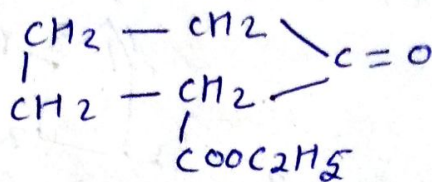 CH2 — CH2
C = O
CH2 — CH2
COOC2H5